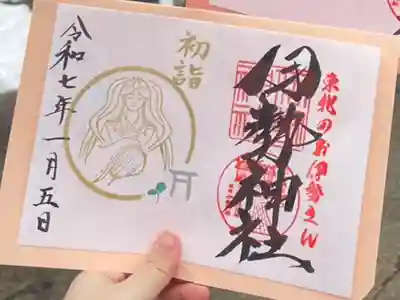 東北のお伊勢さん
伊勢神社
初詣
令和七年一月五日